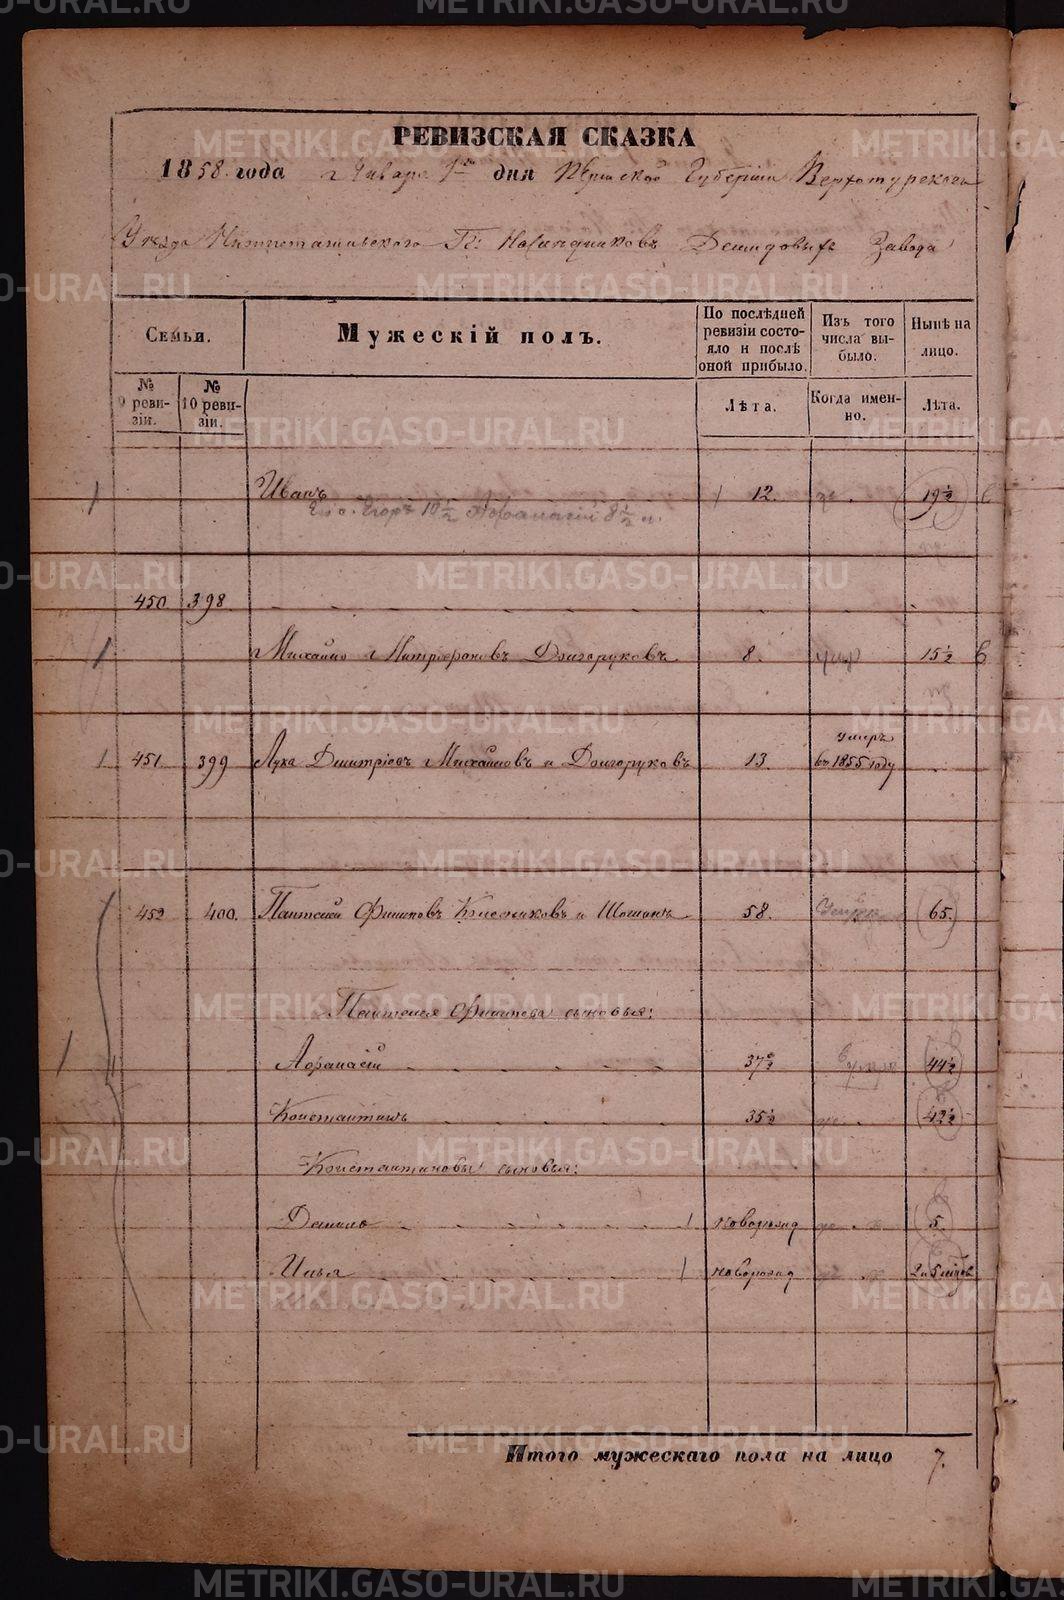 METRIKI.GASO-URAL.RU
РЕВИЗСКАЯ СКАЗКА
1858. года Января 1го дня Пермской Губернiи Верхотурскаго
Уѣзда Нижнетагильскаго Гг: Наслѣдниковъ Демидовыхъ Завода
Семьи.
Мужескій полъ.
По послѣдней ревизіи состояло и послѣ оной прибыло.
Изъ того числа выбыло.
Нынѣ на лицо.
№ 9 ревизіи.
№ 10 ревизіи.
Лѣта.
Когда именно.
Лѣта.
1 Иванъ 1 12. 19½
Егоръ 10½ Афанасій 8½
450 398
1 Михайло Митрофановъ Долгоруковъ 8. 15½
1 451 399 Лука Дмитріевъ Михайловъ и Долгоруковъ 13 умеръ въ 1855 году
452 400. Пантелей Филиповъ Колесниковъ и Шошинъ 58. 65.
Пантелея Филипова сыновья:
1 Афанасій 37½ 44½
Константинъ 35½ 42½
Константиновы сыновья:
Данило 1 новорожд 5.
Илья 1 новорожд 2 и 5 мѣсяц
Итого мужескаго пола на лицо 7.